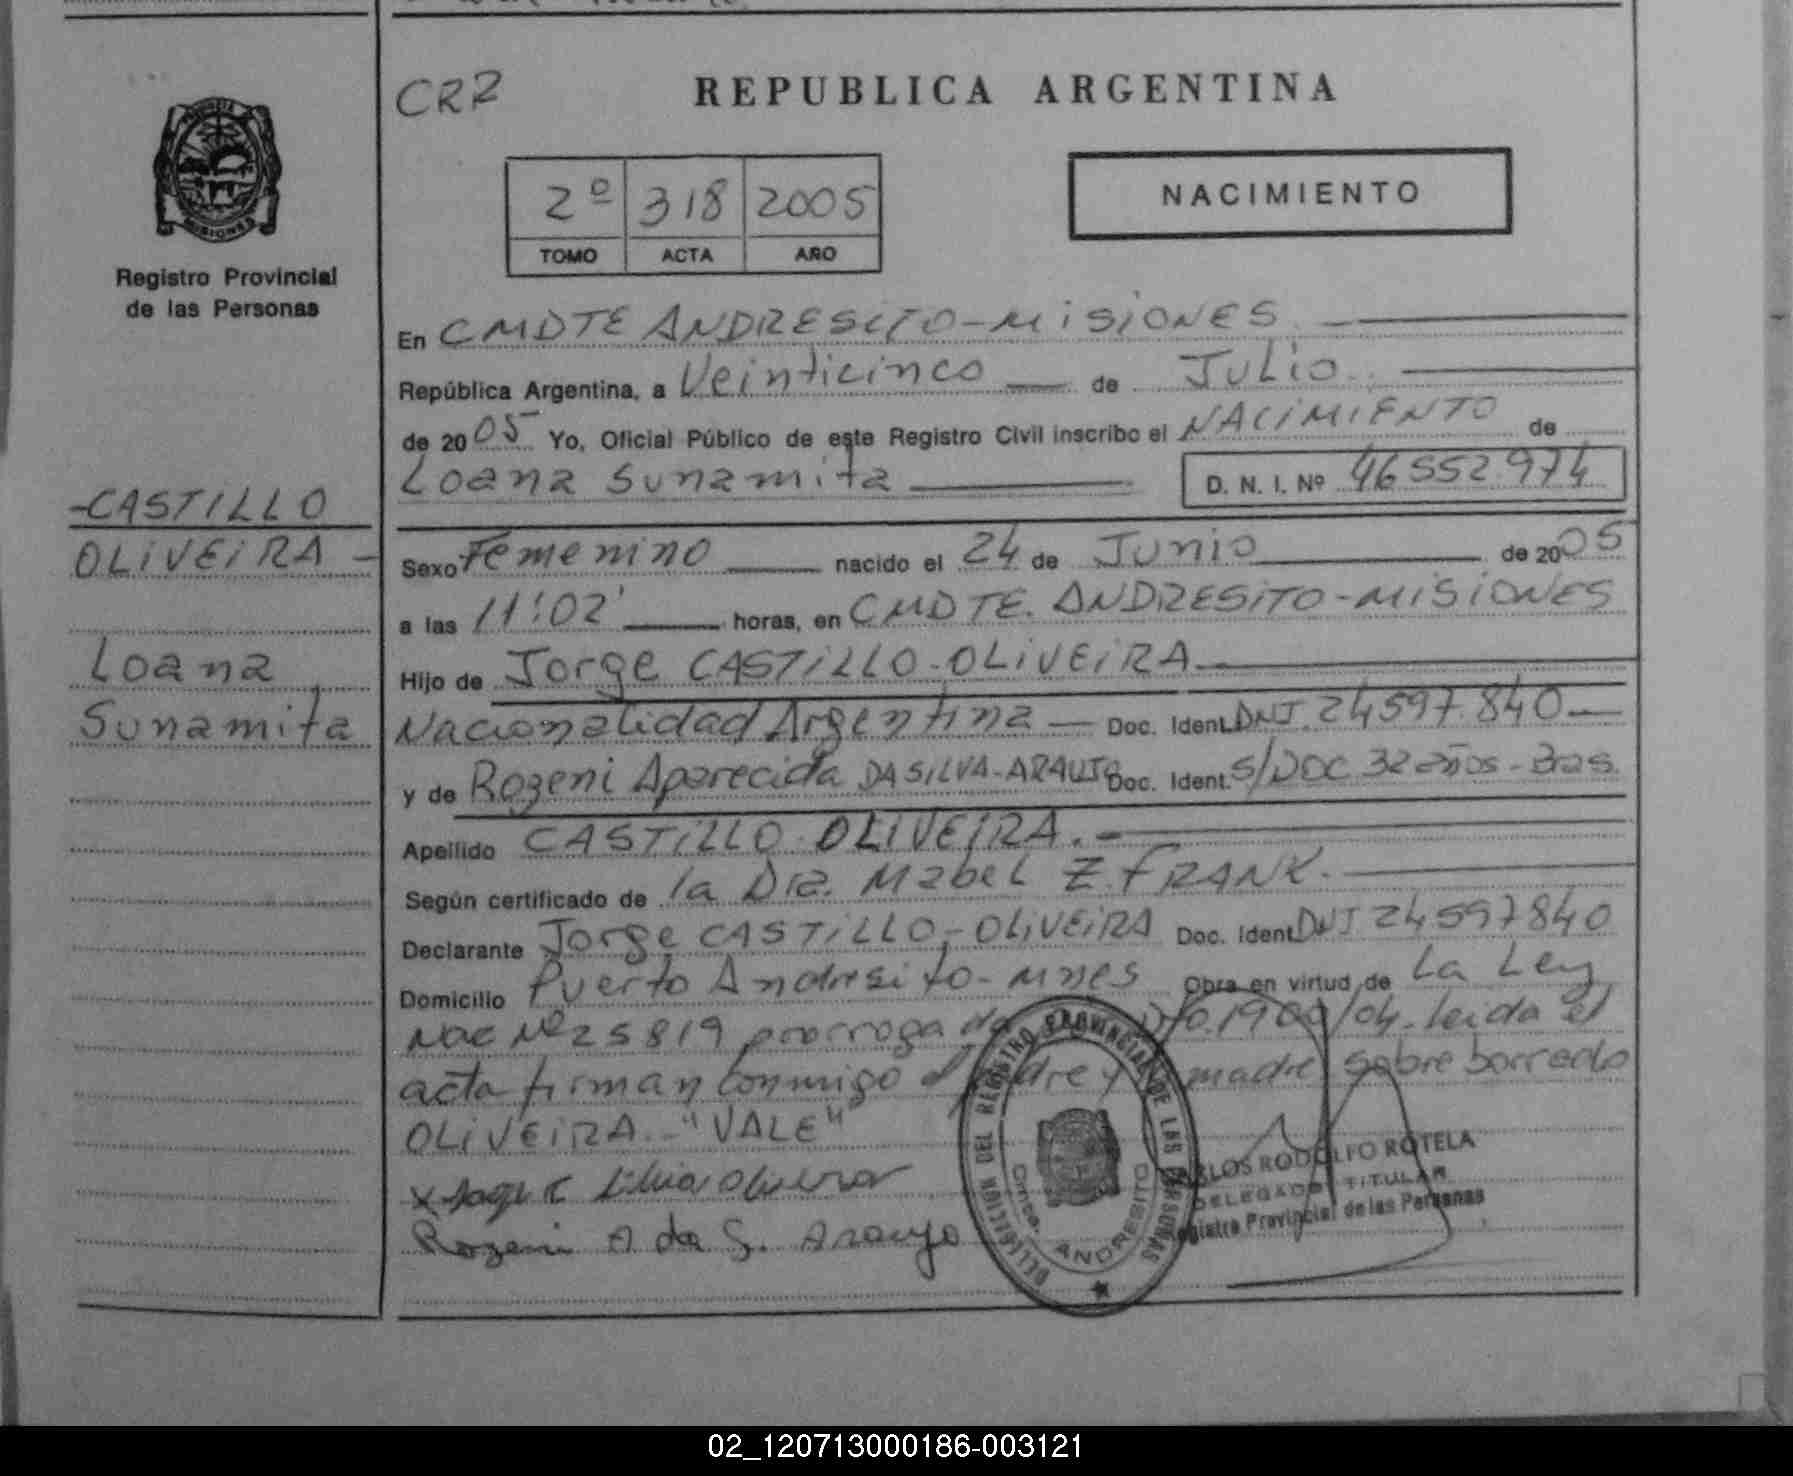 CRR
REPUBLICA ARGENTINA
2º 318 2005
TOMO ACTA AÑO
NACIMIENTO
PROVINCIA
MISIONES
Registro Provincial
de las Personas
En CMDTE ANDRESITO - MISIONES
República Argentina, a Veinticinco de Julio
de 2005 Yo, Oficial Público de este Registro Civil inscribo el NACIMIENTO de
Loana Sunamita D. N. I. Nº 46552974
-CASTILLO
OLIVEIRA -
Loana
Sunamita
Sexo Femenino nacido el 24 de Junio de 2005
a las 11:02' horas, en CMDTE. ANDRESITO - MISIONES
Hijo de Jorge CASTILLO-OLIVEIRA
Nacionalidad Argentina - Doc. Ident. DNI. 24597.840-
y de Rozeni Aparecida DA SILVA-ARAUJO Doc. Ident. S/DOC 32 años - Bras.
Apellido CASTILLO OLIVEIRA.-
Según certificado de la Dra. Mabel Z. FRANK.
Declarante Jorge CASTILLO-OLIVEIRA Doc. Ident. DNI 24597840
Domicilio Puerto Andresito - Mnes Obra en virtud de La Ley
Nac Nº 25819 prorroga Dto. 1900/04. leida el
acta firman conmigo el padre y madre sobre borrado
OLIVEIRA - "VALE"
Rozeni A da S. Araujo
DELEGACION DEL REGISTRO PROVINCIAL DE LAS PERSONAS
Cmte. ANDRESITO
CARLOS RODOLFO ROTELA
DELEGADO TITULAR
Registro Provincial de las Personas
02_120713000186-003121